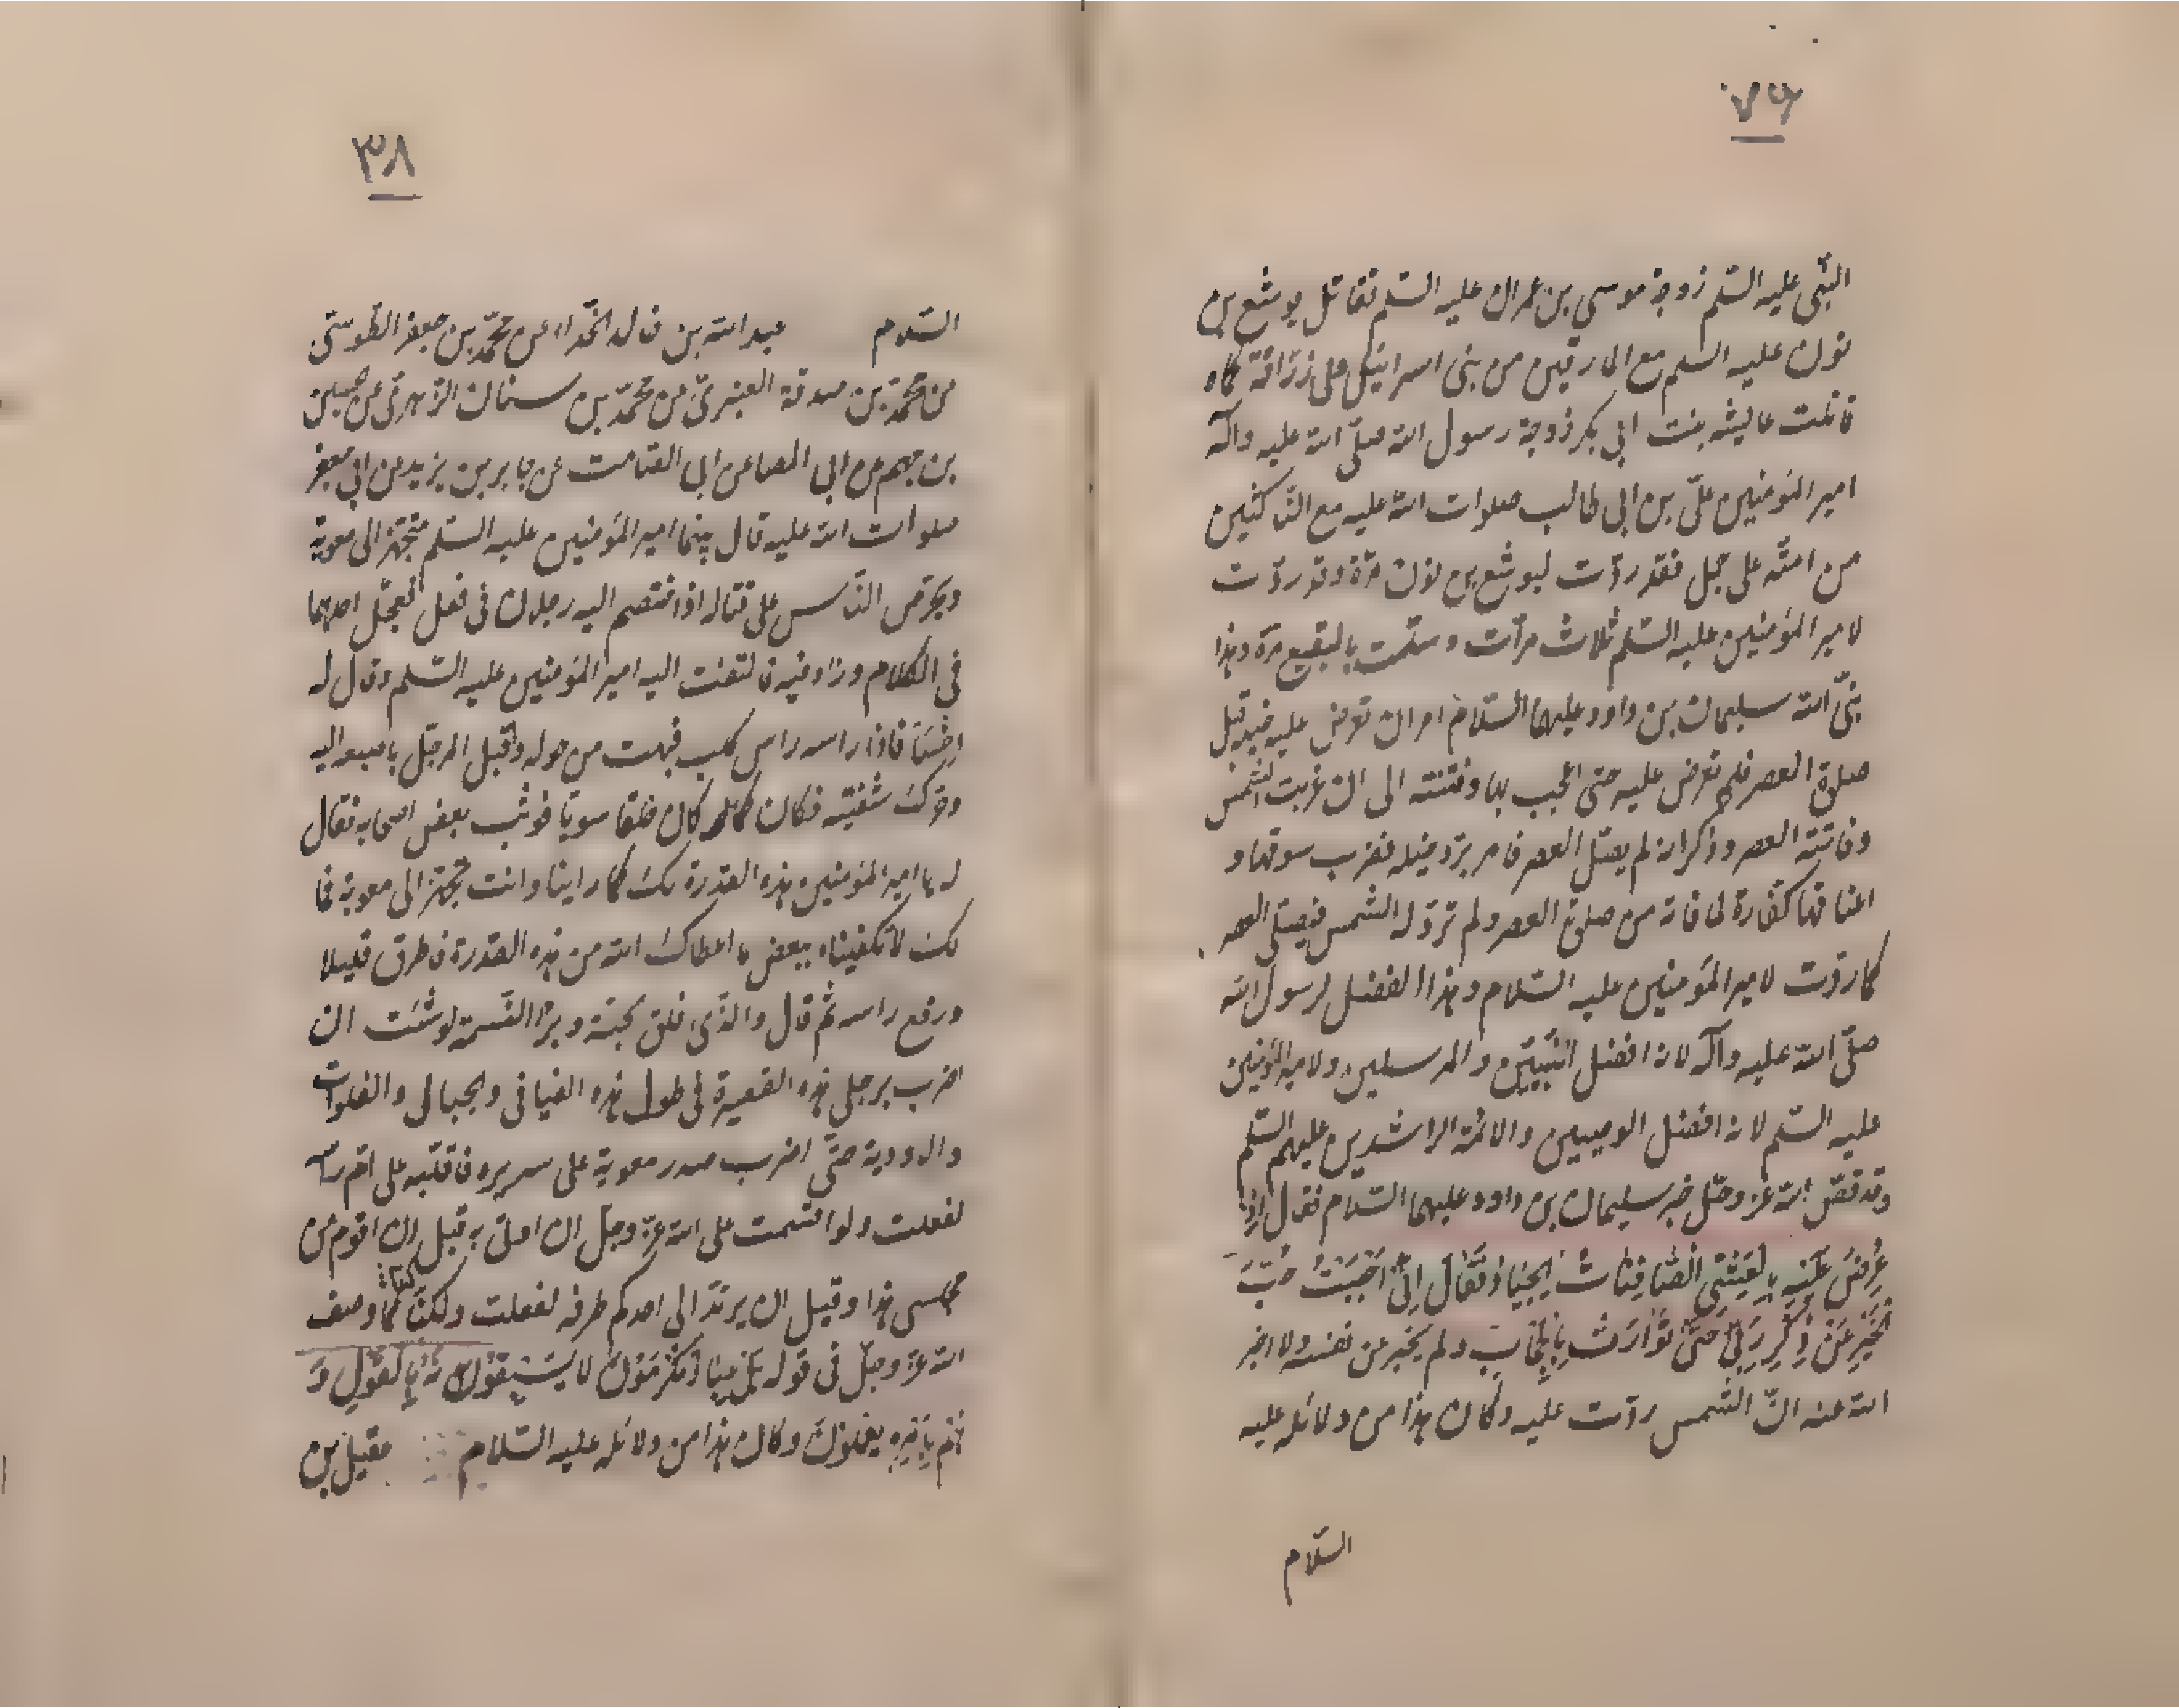 النبی علیه السلم زوجة موسی بن عمران علیه السلم تقاتل یوشع بن
نون علیه السلم مع المارقین من بنی اسرائیل علی زرافة کما
قاتلت عایشه بنت ابی بکر زوجة رسول الله صلّی الله علیه وآله
امیر المؤمنین علیّ بن ابی طالب صلوات الله علیه مع الناکثین
من امته علی جمل فقد ردّت لیوشع بن نون مرّة وقد ردّت
لامیر المؤمنین علیه السلم ثلاث مرّات وسلّمت بالبقیع مرّة وهذا
نبیّ الله سلیمان بن داود علیهما السّلام امر ان تعرض علیه خیله قبل
صلوة العصر فلم تعرض علیه حتی اعجب بها وفتنته الی ان غربت الشمس
وفاتته العصر وذکر انه لم یصلّ العصر فامر بردّ خیله فضرب سوقها و
اعناقها کفّارة لما فاته من صلوة العصر ولم تردّ له الشمس فیصلّی العصر
کما ردّت لامیر المؤمنین علیه السّلام وهذا الفضل لرسول الله
صلّی الله علیه وآله لانه افضل النّبیّین والمرسلین ولامیر المؤمنین
علیه السّلم لانه افضل الوصیین والائمة الراشدین علیهم السّلم
وقد قصّ الله عزّ وجلّ خبر سلیمان بن داود علیهما السّلام فقال اِذ
عُرِضَ عَلَیْهِ بِالْعَشِیِّ الصّافِناتُ الْجِیادُ فَقالَ اِنّی اَحْبَبْتُ حُبَّ
الْخَیْرِ عَنْ ذِکْرِ رَبّی حَتّی تَوارَتْ بِالْحِجابِ ولم یخبر عن نفسه ولا اخبر
الله عنه انّ الشّمس ردّت علیه وکان هذا من دلائله علیه
السّلام
۳۸
السّلام عبد الله بن خالد الحذّاء عن محمّد بن جعفر الطّوسیّ
عن محمّد بن صدقة العنبریّ عن محمّد بن سنان الزّاهریّ عن حسین
بن جهم عن ابی الصّامت عن جابر بن یزید عن ابی جعفر
صلوات الله علیه قال بینما امیر المؤمنین علیه السّلم متجهّز الی معویة
ویحرّض النّاس علی قتاله اذا اختصم الیه رجلان فی فعل فعجّل احدهما
فی الکلام وزاد فیه فالتفت الیه امیر المؤمنین علیه السّلم وقال له
اخسأ فاذا راسه راس کلب فبهت من حوله واقبل الرجل باصبعه الیه
وحرّک شفتیه فکان کما کان خلقا سویّا فوثب بعض اصحابه فقال
له یا امیر المؤمنین هذه القدرة لک کما راینا وانت تجهّز الی معویة فما
لک لا تکفیناه ببعض ما اعطاک الله من هذه القدرة فاطرق قلیلا
ورفع راسه ثم قال والّذی فلق الحبّة وبرأ النّسمة لو شئت ان
اضرب برجلی هذه القصیرة فی طول هذه الفیافی والجبال والفلوات
والاودیة حتّی اضرب صدر معویة علی سریره فاقلبه علی امّ راسه
لفعلت ولو اقسمت علی الله عزّ وجلّ ان اوتی به قبل ان اقوم من
مجلسی هذا وقبل ان یرتدّ الی احدکم طرفه لفعلت ولکنّا کما وصف
الله عزّ وجلّ فی قوله بَلْ عِبادٌ مُکْرَمُونَ لا یَسْبِقُونَهُ بِالْقَوْلِ وَ
هُمْ بِاَمْرِهِ یَعْمَلُونَ وکان هذا من دلائله علیه السّلام عقیل بن